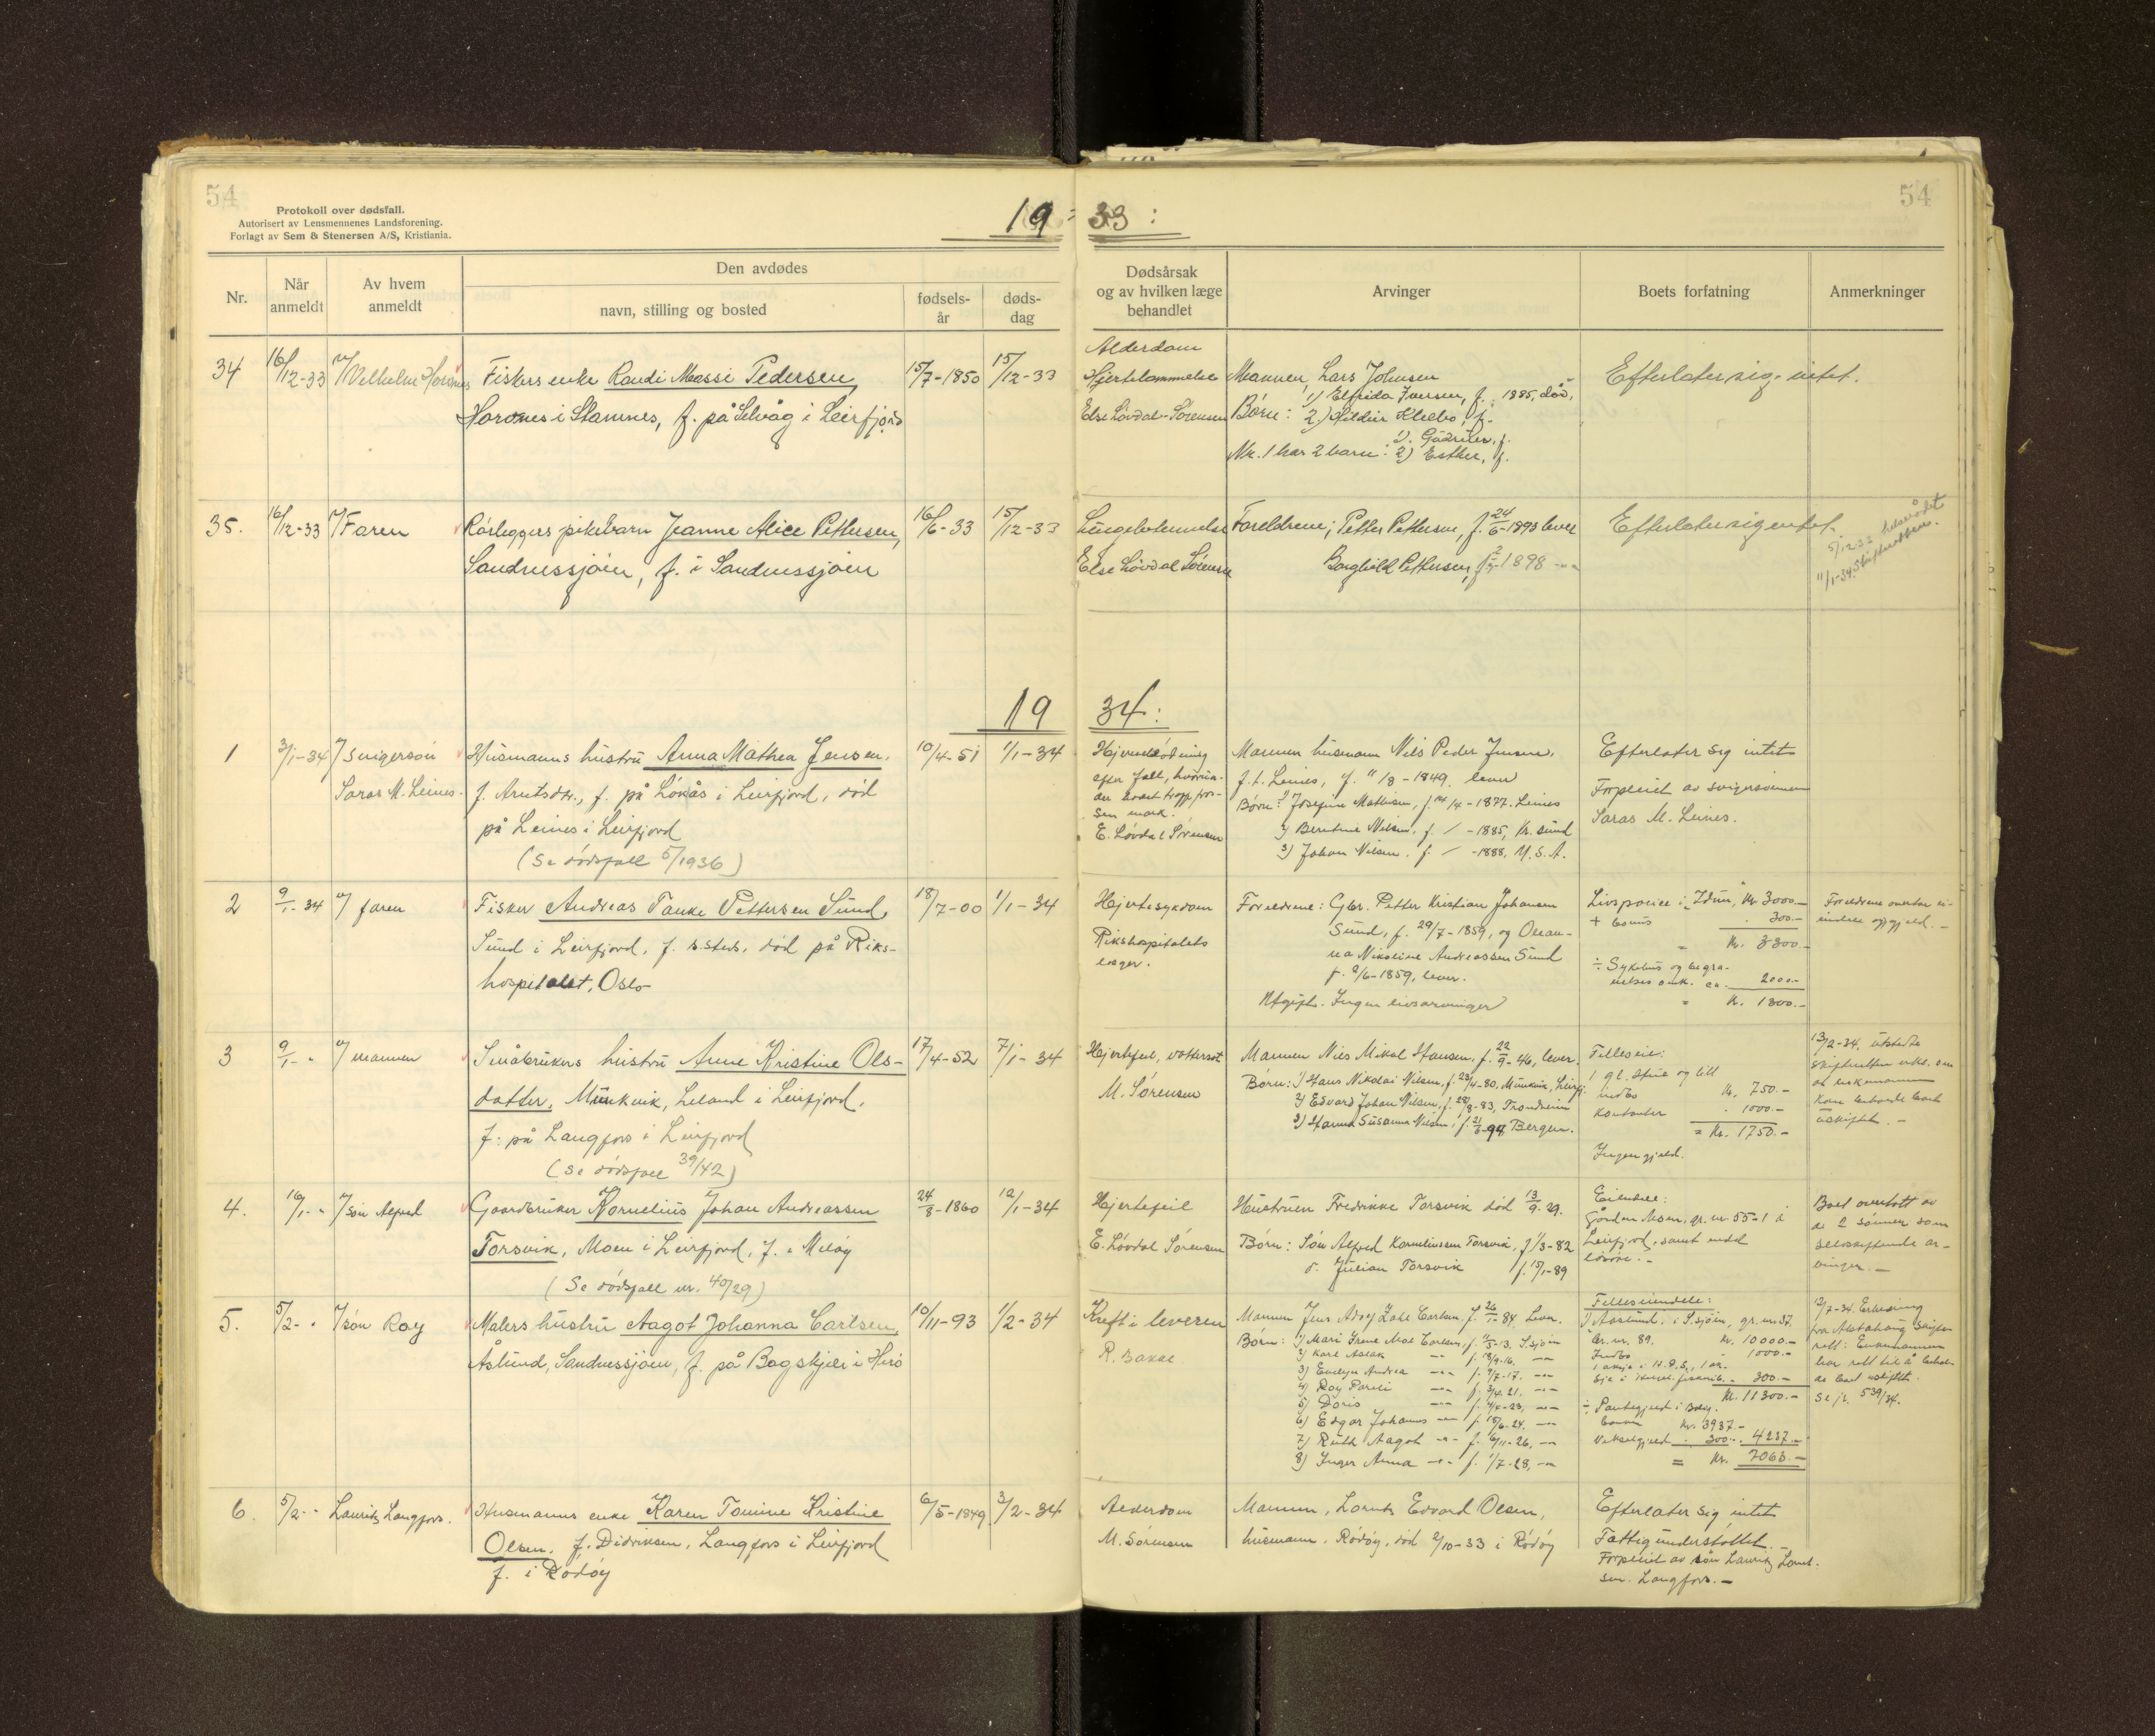 54
54
Protokoll over dødsfall.
Autorisert av Lensmennenes Landsforening.
Forlagt av Sem & Stenersen A/S, Kristiania.
19 = 33 :
Nr.
Når anmeldt
Av hvem anmeldt
Den avdødes
navn, stilling og bosted
fødsels-år
døds-dag
Dødsårsak og av hvilken læge behandlet
Arvinger
Boets forfatning
Anmerkninger
34
16/12-33
Fiskers enke Randi Massi Pedersen
Hornes i Stamnes, f. på Selvåg i Leirfjord
15/7-1850
15/12-33
Alderdom
Hjertelammelse
Else Løvdal-Sørensen
Mannen, Lars Johnsen
Børn: 1) Elfrida Iversen, f. 1885, død,
2.) Hildur Kleibo, f.
Nr. 1 har 2 barn: 2) Esther, f.
Efterlater sig intet.
35.
16/12-33
v/ Faren
Rørleggers pikebarn Jeanne Alice Pettersen,
Sandnessjøen, f. i Sandnessjøen
16/6-33
15/12-33
Else Løvdal Sørensen
Foreldrene; Petter Pettersen, f. 24/6-1893 lever
Borghild Pettersen, 1898 -"-
Efterlater sig intet.
11/1-34 Skifteretten.
19 34:
1
3/1-34
v/ Svigersøn
Saras M. Leines.
Husmanns hustru Anna Mathea Jensen,
f. Arntsdtr., f. på Løkås i Leirfjord, død
på Leines i Leirfjord
(Se dødsfall 5/1936)
10/4-51
1/1-34
efter fall,
E. Løvdal Sørensen
Mannen husmann Nils Peder Jensen,
f. t. Leines, f. 11/8-1849, lever
Børn: 1) Josefine Mathisen, f. 14/4-1877. Leines
2) Berntine Nilsen, f. / -1885, Kr. sund
3) Johan Nilsen, f. / -1888, U.S.A.
Efterlater sig intet
Forpleiet av svigersønnen
Saras M. Leines.
2
9/1-34
v/ faren
Fisker Andreas Tanke Pettersen Sund,
Sund i Leirfjord, f. s.steds, død på Riks-
hospitalet, Oslo
18/7-00
1/1-34
Hjertesykdom
Rikshospitalets
læger.
Foreldrene: Gbr. Petter Kristian Johansen
Sund, f. 29/7-1859, og Ocean-
na Nikoline Andreassen Sund
f. 2/6-1859, lever.
Ugift. Ingen livsarvinger
Livspolice i "Idun", Kr. 3000.-
+ bonus 300.-
= Kr. 3300.-
÷ Sykehus og begra-
velses omk. ca. 2000.-
= Kr. 1300.-
Foreldrene overtar ei-
endele og gjeld. -
3
9/1- "
v/ mannen
Småbrukers hustru Anne Kristine Ols-
datter, Munkvik, Leland i Leirfjord,
f. på Langfors i Leirfjord
(Se dødsfall 39/42)
17/4-52
7/1-34
Hjertefeil, vattersot
M. Sørensen
Mannen Nils Mikal Hansen, f. 22/9-46, lever.
Børn: 1) Hans Nikolai Nilsen, f. 23/4-80, Munkvik, Leirfj.
2) Edvard Johan Nilsen, f. 28/8-83, Trondheim
3) Hanna Susanna Nilsen, f. 21/6-94 Bergen.
Felleseie:
1 gl. stue og litt
indbo Kr. 750.-
Kontanter " 1000.-
= Kr. 1750.-
Ingen gjeld.
13/2-34, utstedte
skifteretten erkl. om
at enkemannen
kan beholde boet
uskiftet. -
4.
16/1- "
v/ søn Alfred
Gaardbruker Kornelius Johan Andreassen
Torsvik, Moen i Leirfjord, f. i Meløy
(Se dødsfall nr. 40/29)
24/8-1860
12/1-34
Hjertefeil
E. Løvdal Sørensen
Hustruen Fredrikke Torsvik død 13/9.29.
Børn: Søn Alfred Korneliussen Torsvik, f. 1/3-82
d. Julian Torsvik f. 15/1-89
Eiendele:
Gården Moen, gr. nr. 55-1 i
Leirfjord, samt endel
løsøre. -
Boet overtatt av
de 2 sønner som
selvskiftende ar-
vinger. -
5.
5/2- "
v/ søn Roy
Malers hustru Aagot Johanna Carlsen,
Åslund, Sandnessjøen, f. på Bogskjær i Herø
10/11-93
1/2-34
Kreft i leveren
R. Bakke
Mannen Jens Carlsen, f. 26/1-84, Lever.
Børn: 1) Mari Irene Moe Carlsen, f. 11/3-13, S.sjøen
2) Karl Aslak -"- f. 18/9-16, -"-
3) Evelyn Andrea -"- f. 9/7-17, -"-
4) Roy -"- f. 3/4-21, -"-
5) Doris -"- f. 4/4-23, -"-
6) Edgar Johannes -"- f. 15/6-24, -"-
7) Ruth Aagot -"- f. 6/11-26, -"-
8) Inger Anna -"- f. 1/7-28, -"-
Felleseiendele:
1) Aaslund i S.sjøen, gr. nr. 37
br. nr. 89. Kr. 10000.-
Indbo " 1000.-
300.-
Kr. 11300.-
÷ Pantegjeld i
Kr. 3937.-
Vekselgjeld 300.- 4237.-
= Kr. 7063.-
12/7-34. Erklæring
fra Alstahaug skifte-
rett: Enkemannen
har rett til å behol-
de boet uskiftet.
Se j. 539/34.
6.
5/2- "
Lauritz Langfors.
Husmanns enke Karen Tomine Kristine
Olsen, f. Didriksen, Langfors i Leirfjord
f. i Rødøy
6/5-1849
3/2-34
Alderdom
M. Sørensen
Mannen, Lornts Edvard Olsen,
husmann, Rødøy, død 2/10-33 i Rødøy
Efterlater sig intet
Fattigunderstøttet. -
Forpleiet av søn Lauritz Lornt-
sen, Langfors. -